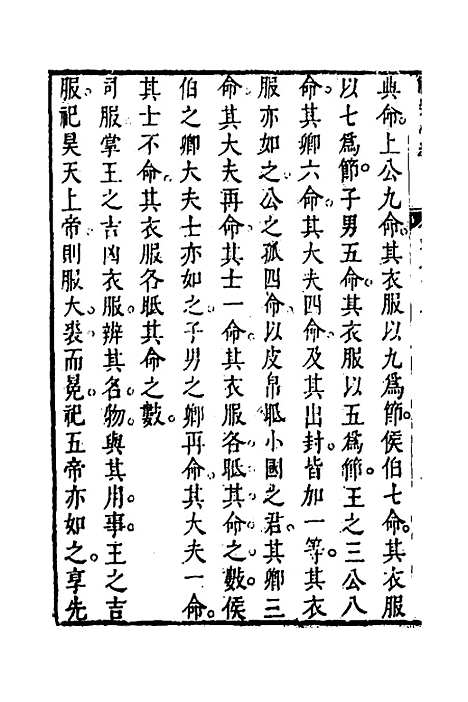 典命上公九命。其衣服以九爲節。侯伯七命。其衣服
以七爲節。子男五命。其衣服以五爲節。王之三公八
命。其卿六命。其大夫四命。及其出封。皆加一等。其衣
服亦如之。公之孤四命。以皮帛眡小國之君。其卿三
命。其大夫再命。其士一命。其衣服各眡其命之數。侯
伯之卿大夫士亦如之。子男之卿再命。其大夫一命。
其士不命。其衣服各眡其命之數。
司服掌王之吉凶衣服。辨其名物。與其用事。王之吉
服。祀昊天上帝。則服大裘而冕。祀五帝亦如之。享先